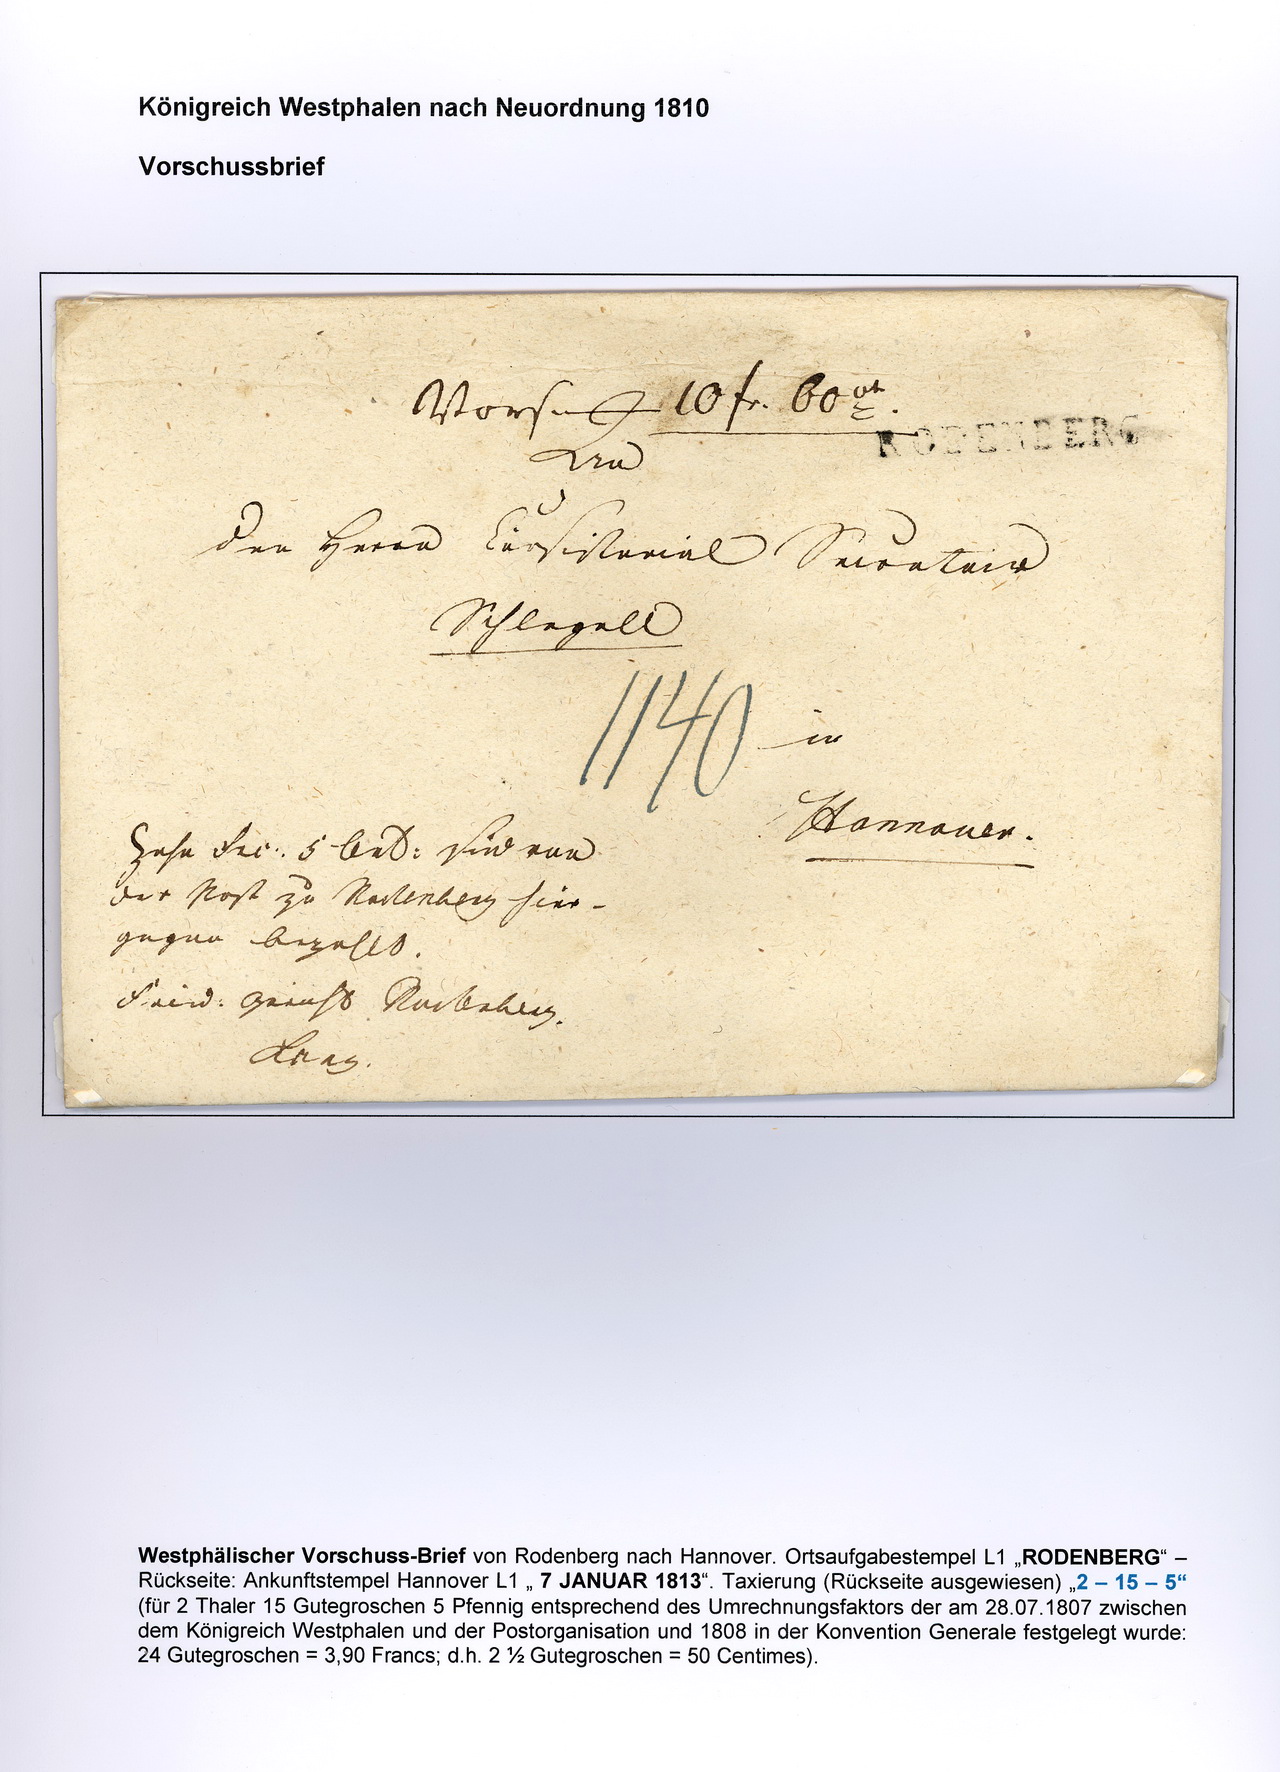 Königreich Westphalen nach Neuordnung 1810
Vorschussbrief
Vorschuß 10 fr. 60 ct.
RODENBERG
An
den Herrn Consistorial Secretair
Schlegell
1140
in
Hannover.
Zehn Frc. 5 sind von
der Post zu Rodenberg hier-
gegen bezahlt.
Rodenberg.
Westphälischer Vorschuss-Brief von Rodenberg nach Hannover. Ortsaufgabestempel L1 „RODENBERG“ –
Rückseite: Ankunftstempel Hannover L1 „ 7 JANUAR 1813“. Taxierung (Rückseite ausgewiesen) „2 – 15 – 5“
(für 2 Thaler 15 Gutegroschen 5 Pfennig entsprechend des Umrechnungsfaktors der am 28.07.1807 zwischen
dem Königreich Westphalen und der Postorganisation und 1808 in der Konvention Generale festgelegt wurde:
24 Gutegroschen = 3,90 Francs; d.h. 2 ½ Gutegroschen = 50 Centimes).